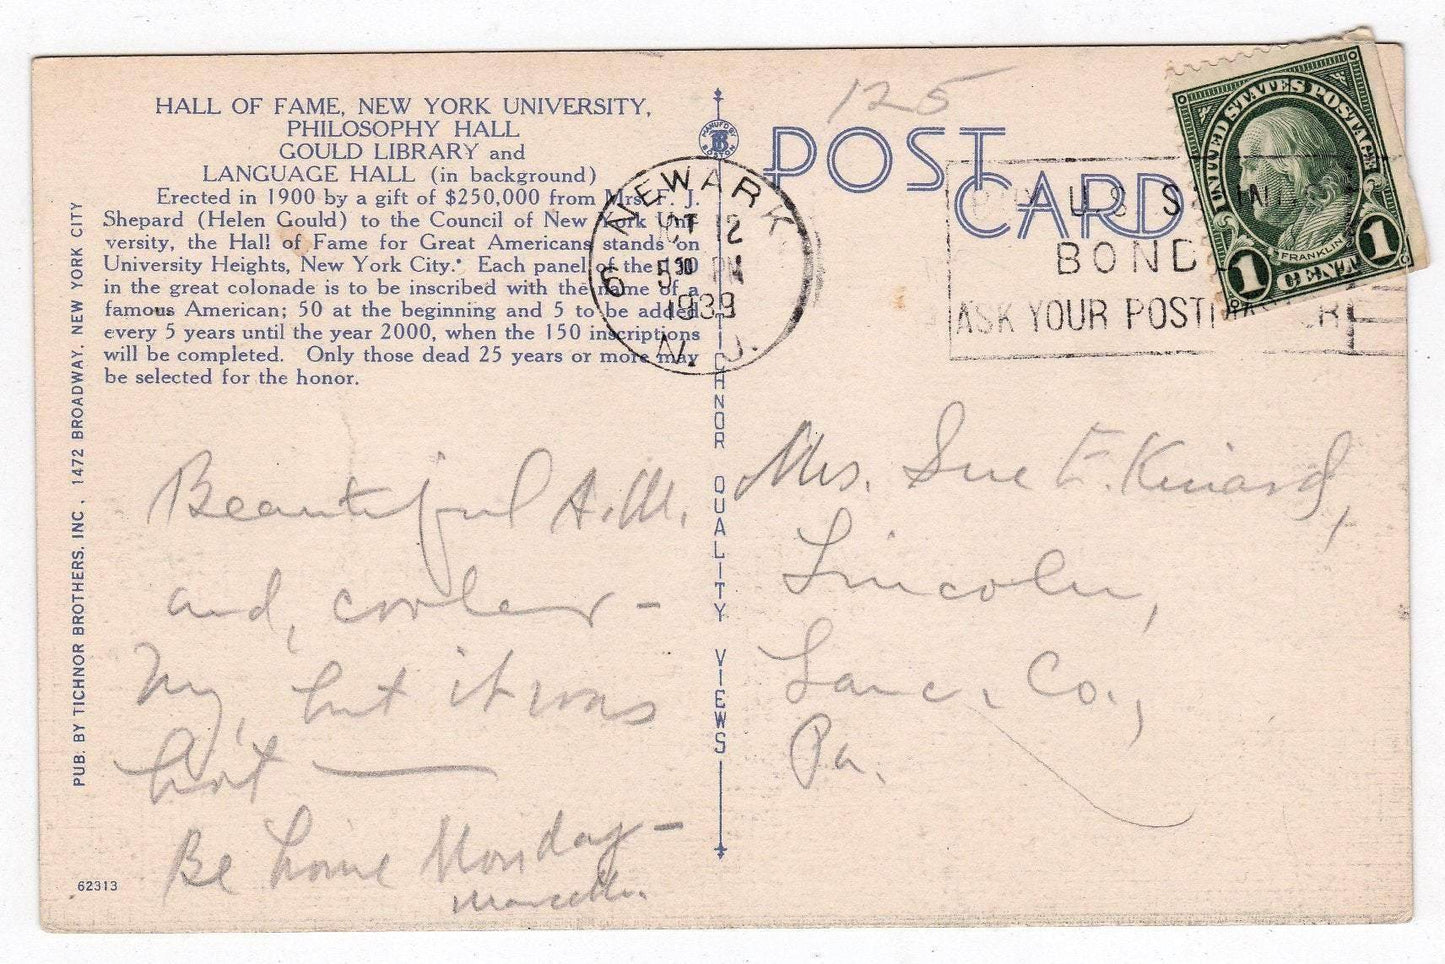 HALL OF FAME, NEW YORK UNIVERSITY,
PHILOSOPHY HALL
GOULD LIBRARY and
LANGUAGE HALL (in background)
Erected in 1900 by a gift of $250,000 from Mrs. F. J.
Shepard (Helen Gould) to the Council of New York Uni
versity, the Hall of Fame for Great Americans stands on
University Heights, New York City. Each panel of the 150
in the great colonade is to be inscribed with the name of a
famous American; 50 at the beginning and 5 to be added
every 5 years until the year 2000, when the 150 inscriptions
will be completed. Only those dead 25 years or more may
be selected for the honor.
PUB. BY TICHNOR BROTHERS, INC., 1472 BROADWAY, NEW YORK CITY
Beautiful A.M.
and, cooler –
My, but it was
hot —
Be home Monday –
62313
MANUF'D BY
TB
BOSTON
TICHNOR QUALITY VIEWS
125
POST
CARD
NEWARK
6
OCT 12
5 30 PM
1939
N. J.
U. S. SAVINGS
BOND
ASK YOUR POSTMASTER
UNITED STATES POSTAGE
FRANKLIN
1 CENT 1
Mrs. Sue E. Kinard,
Lincoln,
Lanc. Co.,
Pa.